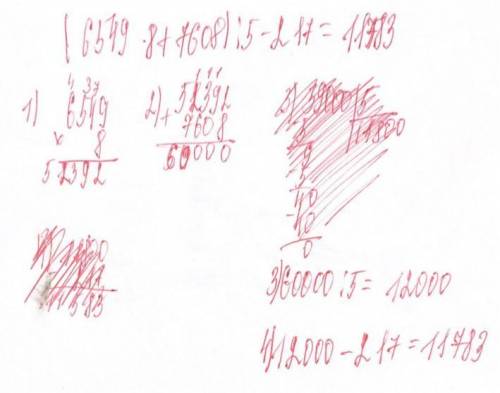 (6549 · 8 + 7608) : 5 - 217 = 11783
1) 4 37
6549
× 8
52392
2) 1 1 1
+ 52392
7608
60000
3) 60000 : 5 = 12000
4) 12000 - 217 = 11783